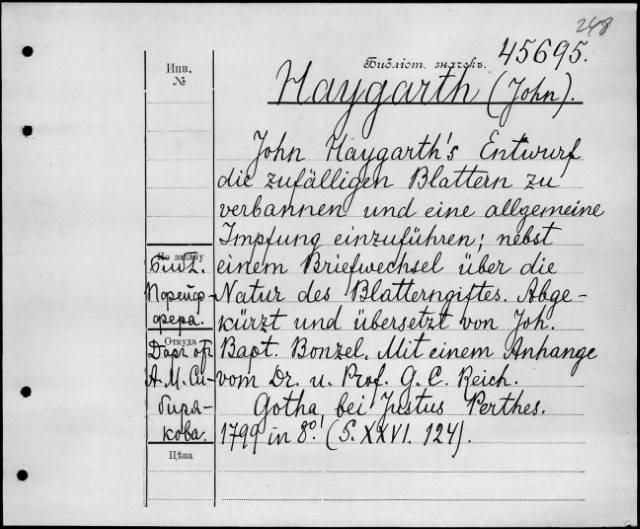 248
Библіот. значокъ. 45695.
Инв.
№
Haygarth (John).
John Haygarth's Entwurf
die zufälligen Blattern zu
verbannen und eine allgemeine
Impfung einzuführen; nebst
einem Briefwechsel über die
Natur des Blatterngiftes. Abge-
kürzt und übersetzt von Joh.
Bapt. Bonzel. Mit einem Anhange
vom Dr. u. Prof. G. C. Reich.
Gotha, bei Justus Perthes.
1799 in 8º. (S. XXVI. 124).
По заказу
Библ.
Порейф-
фера.
Откуда
Даръ от
А. М. Си-
биря-
кова.
Цѣна